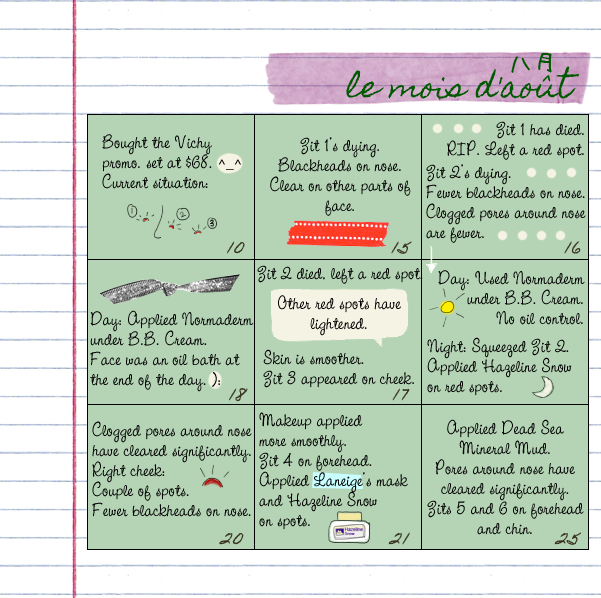 八月
le mois d'août
Bought the Vichy
promo. set at $68. ^_^
Current situation:
1
2
3
10
Zit 1's dying.
Blackheads on nose.
Clear on other parts of
face.
15
Zit 1 has died.
RIP. Left a red spot.
Zit 2's dying.
Fewer blackheads on nose.
Clogged pores around nose
are fewer.
16
Day: Applied Normaderm
under B.B. Cream.
Face was an oil bath at
the end of the day. ):
18
Zit 2 died, left a red spot
Other red spots have
lightened.
Skin is smoother.
Zit 3 appeared on cheek.
17
Day: Used Normaderm
under B.B. Cream.
No oil control.
Night: Squeezed Zit 2.
Applied Hazeline Snow
on red spots.
Clogged pores around nose
have cleared significantly.
Right cheek:
Couple of spots.
Fewer blackheads on nose.
20
Makeup applied
more smoothly.
Zit 4 on forehead.
Applied Laneige's mask
and Hazeline Snow
on spots.
Hazeline
Snow
21
Applied Dead Sea
Mineral Mud.
Pores around nose have
cleared significantly.
Zits 5 and 6 on forehead
and chin.
25